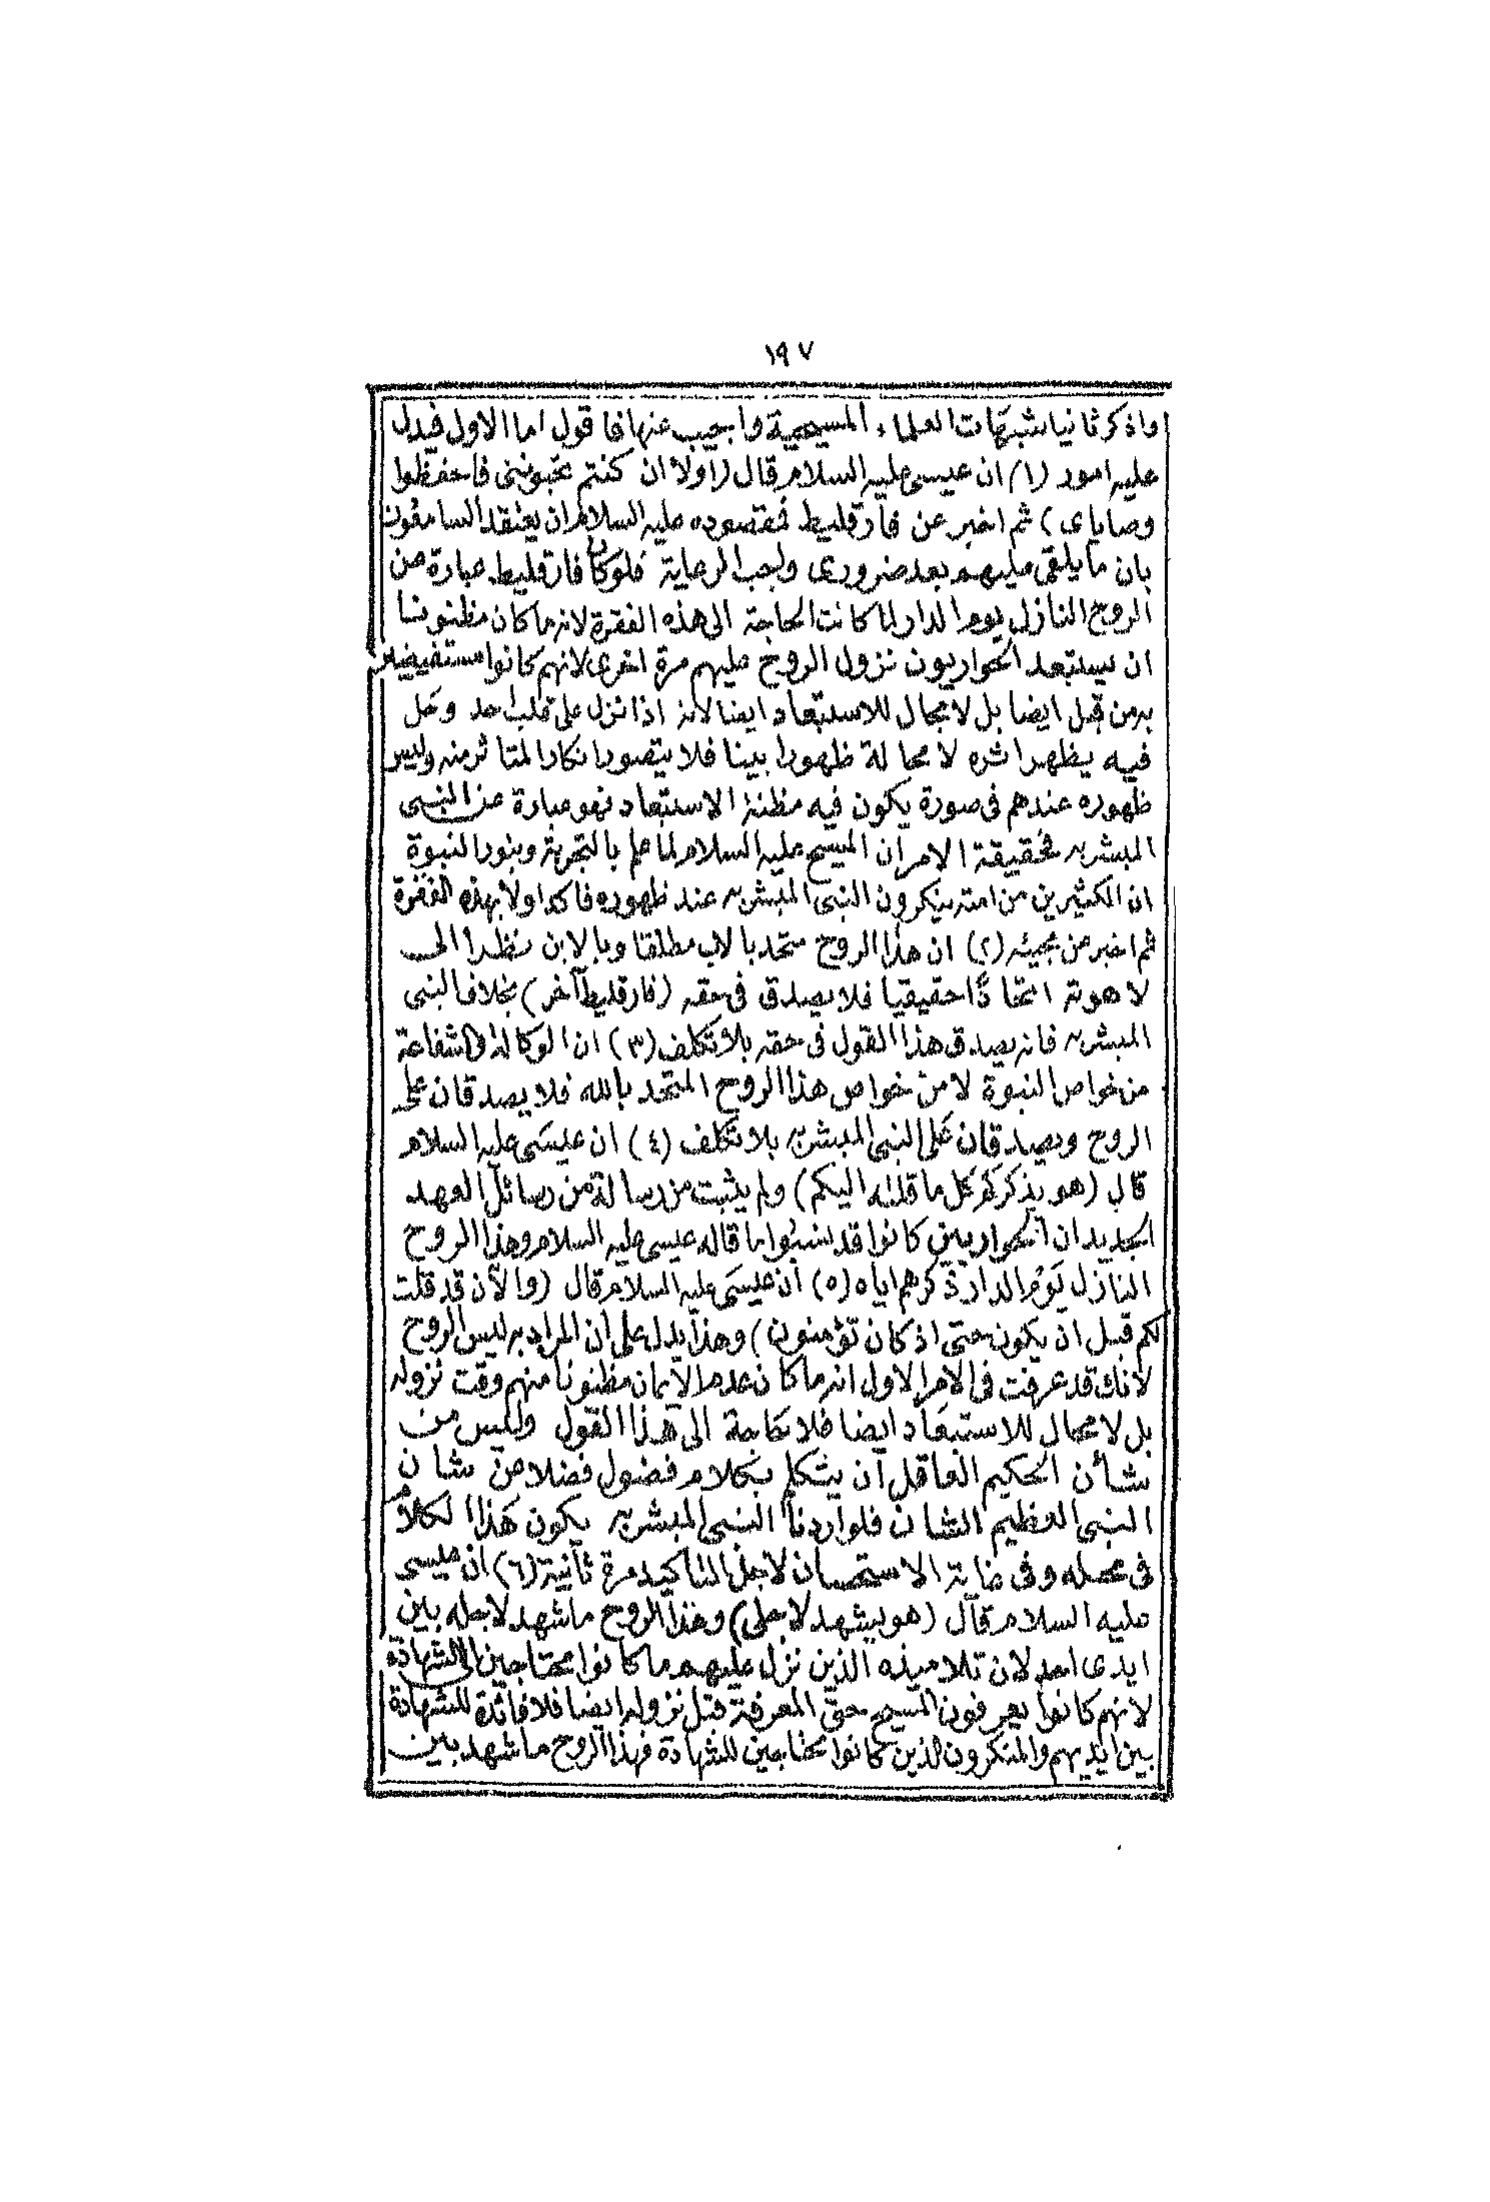 ١٩٧
واذكر ثانيا شبهات العلماء المسيحية واجيب عنها فاقول اما الاول فيدل
عليه امور (١) ان عيسى عليه السلام قال (اولا ان كنتم تحبوننى فاحفظوا
وصاياى) ثم اخبر عن فارقليط فمقصوده عليه السلام ان يعتقد السامعون
بان ما يلقى عليهم بعد ضرورى واجب الرعاية فلو كان فارقليط عبارة عن
الروح النازل يوم الدار لما كانت الحاجة الى هذه الفقرة لانه ما كان مظنونا
ان يستبعد الحواريون نزول الروح عليهم مرة اخرى لانهم كانوا مستفيضين
به من قبل ايضا بل لا مجال للاستبعاد ايضا لانه اذا نزل على قلب احد وحل
فيه يظهر اثره لا محالة ظهورا بينا فلا يتصور انكار المتاثر منه وليس
ظهوره عندهم فى صورة يكون فيه مظنة الاستبعاد فهو عبارة عن النبى
المبشر به فحقيقة الامر ان المسيح عليه السلام لما علم بالتجربة وبنور النبوة
ان الكثيرين من امته ينكرون النبى المبشر به عند ظهوره فاكد اولا بهذه الفقرة
ثم اخبر عن مجيئه (٢) ان هذا الروح متحد بالاب مطلقا وبالابن نظرا الى
لاهوته اتحادًا حقيقيا فلا يصدق فى حقه (فارقليط آخر) بخلاف النبى
المبشر به فانه يصدق هذا القول فى حقه بلا تكلف (٣) ان الوكالة والشفاعة
من خواص النبوة لا من خواص هذا الروح المتحد بالله فلا يصدقان على
الروح ويصدقان على النبى المبشر به بلا تكلف (٤) ان عيسى عليه السلام
قال (هو يذكركم كل ما قلته اليكم) ولم يثبت من رسالة من رسائل العهد
الجديد ان الحواريين كانوا قد نسوا ما قاله عيسى عليه السلام وهذا الروح
النازل يوم الدار ذكرهم اياه (٥) ان عيسى عليه السلام قال (والآن قد قلت
لكم قبل ان يكون حتى اذا كان تؤمنون) وهذا يدل على ان المراد به ليس الروح
لانك قد عرفت فى الامر الاول انه ما كان عدم الايمان مظنونا منهم وقت نزوله
بل لا مجال للاستبعاد ايضا فلا حاجة الى هذا القول وليس من
شأن الحكيم العاقل ان يتكلم بكلام فضول فضلا من شان
النبى العظيم الشان فلو اردنا النبى المبشر به يكون هذا الكلام
فى محله وفى غاية الاستحسان لاجل التاكيد مرة ثانية (٦) ان عيسى
عليه السلام قال (هو يشهد لاجلى) وهذا الروح ما شهد لاجله بين
ايدى احد لان تلاميذه الذين نزل عليهم ما كانوا محتاجين الى الشهادة
لانهم كانوا يعرفون المسيح حق المعرفة قبل نزوله ايضا فلا فائدة للشهادة
بين ايديهم والمنكرون الذين كانوا محتاجين للشهادة فهذا الروح ما شهد بين